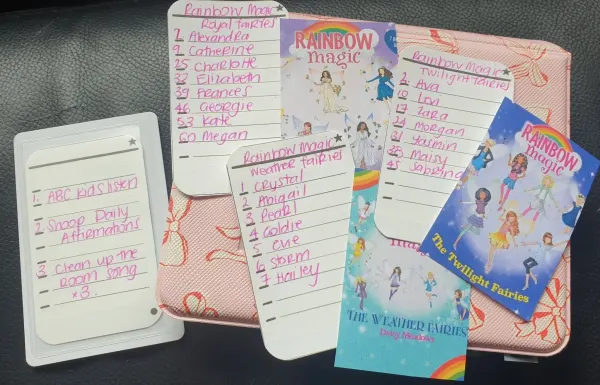 1. ABC kids listen
2. Snoop Daily
Affirmations
3. Clean up the
Room song
*3
Rainbow Magic
Royal fairies
2 Alexandra
9 Catherine
25 Charlotte
32 Elizabeth
39 Frances
46 Georgie
53 Kate
60 Megan
RAINBOW
magic
Rainbow Magic
Weather fairies
1 Crystal
2 Abigail
3 Pearl
4 Goldie
5 Evie
6 Storm
7 Hailey
THE WEATHER FAIRIES
Daisy Meadows
Rainbow Magic
Twilight fairies
2. Ava
10 Lexi
13 Zara
24 Morgan
31 Yasmin
38 Maisy
45 Sabrina
RAINBOW
magic
The Twilight Fairies